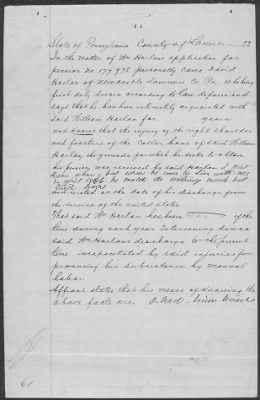 State of Pennsylvania County of Lawrence SS
In the matter of Wm Harlan application for
pension no 177978 personally came David
Harlan of Newcastle Lawrence Co. Pa. who being
first duly sworn according to Law deposes and
says that he has been intimately acquainted with
said William Harlan for years
and knows that the injury of the right shoulder
and fracture of the Collar bone of said William
Harlan, the grounds for which he seeks to obtain
his pension was received by said Harlan I dont
know when but when he came to live with me
in april 1866 he could do nothing much but
and existed at the date of his discharge from
the service of the united states
That said Wm Harlan has been of the
time during each year Intervening since
said Wm Harlans discharge to the present
time incapacitated by said injuries from
procuring his subsistence by manual
labor
Affiant states that his means of knowing the
above facts are
61